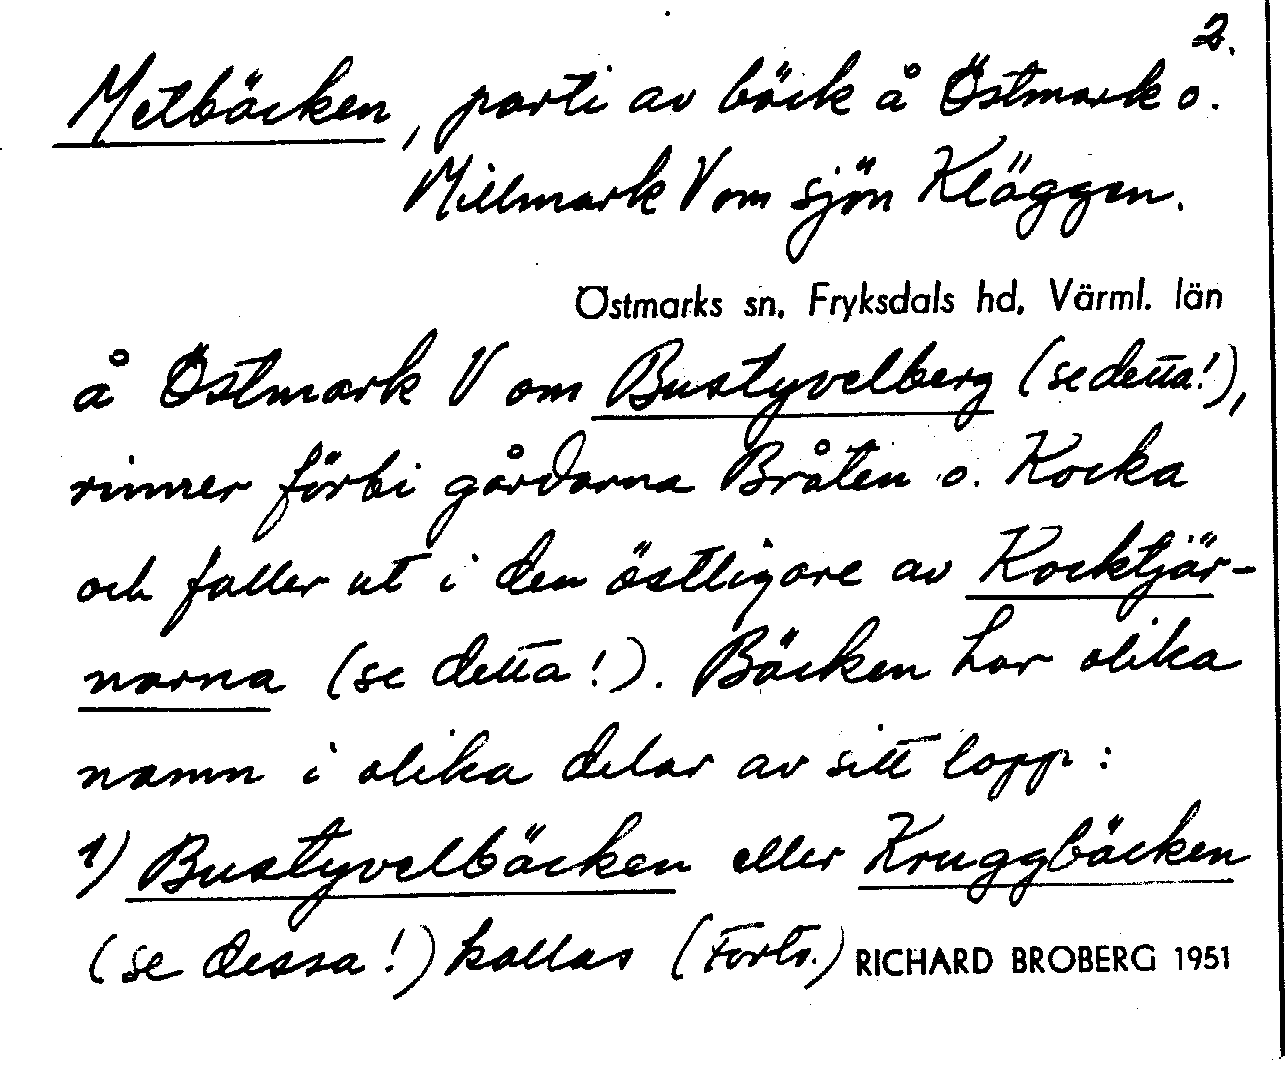 2.
Metbäcken, parti av bäck å Östmark o.
Millmark V om sjön Kläggen.
Östmarks sn, Fryksdals hd, Värml. län
å Östmark V om Bustyvelberg (se detta!),
rinner förbi gårdarna Bråten o. Kocka
och faller ut i den östligare av Kocktjär-
narna (se detta!). Bäcken har olika
namn i olika delar av sitt lopp:
1) Bustyvelbäcken eller Kruggbäcken
(se dessa!) kallas (Forts.) RICHARD BROBERG 1951